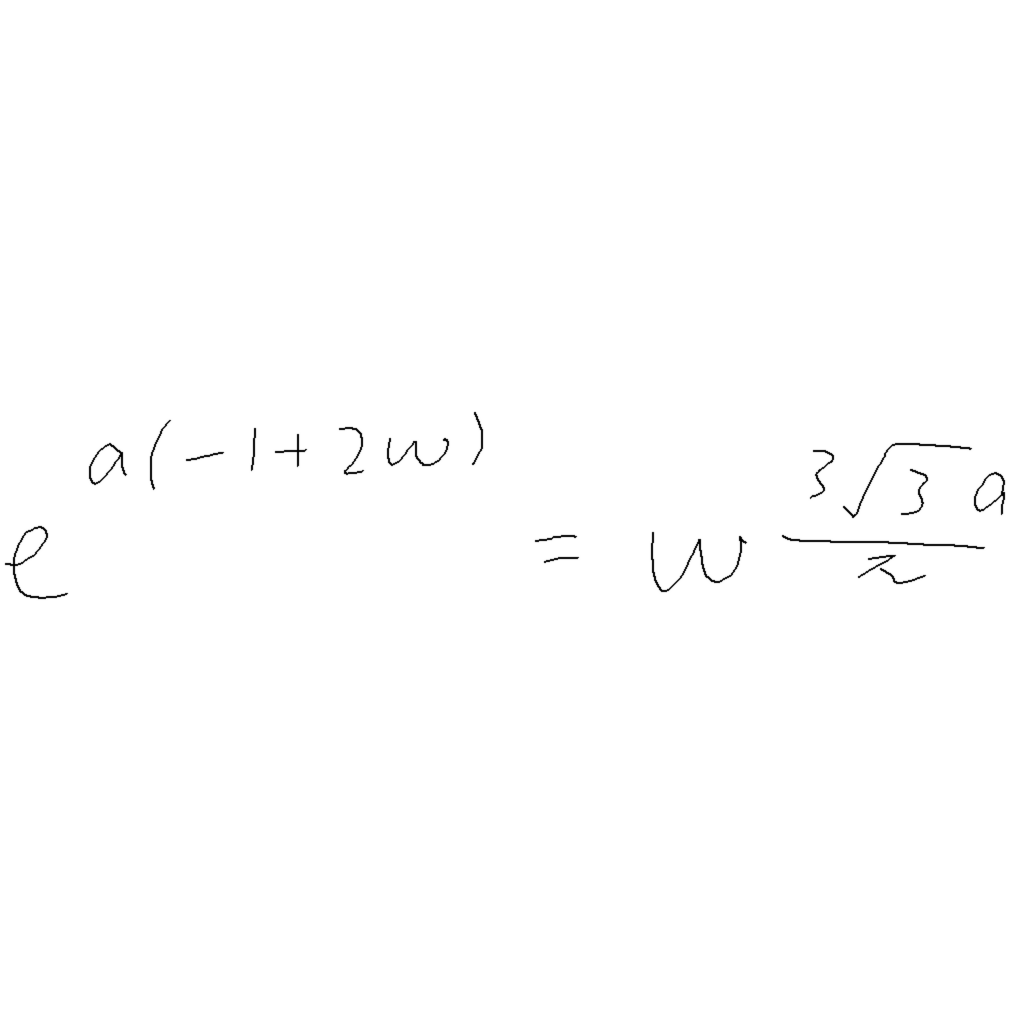 e^{a(-1+2w)} = w^{\frac{3\sqrt{3}a}{π}}